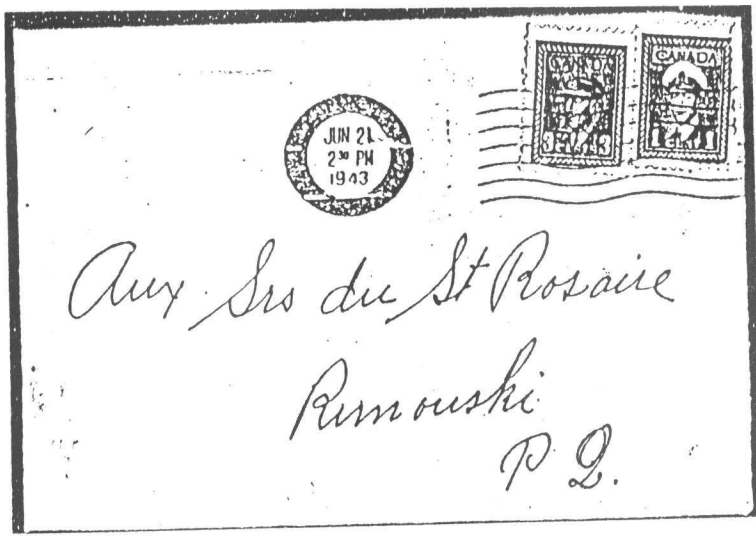 CANADA CANADA
3 3 1 CENT 1
JUN 21
2³⁰ PM
1943
Aux Srs du St Rosaire
Rimouski
P. Q.